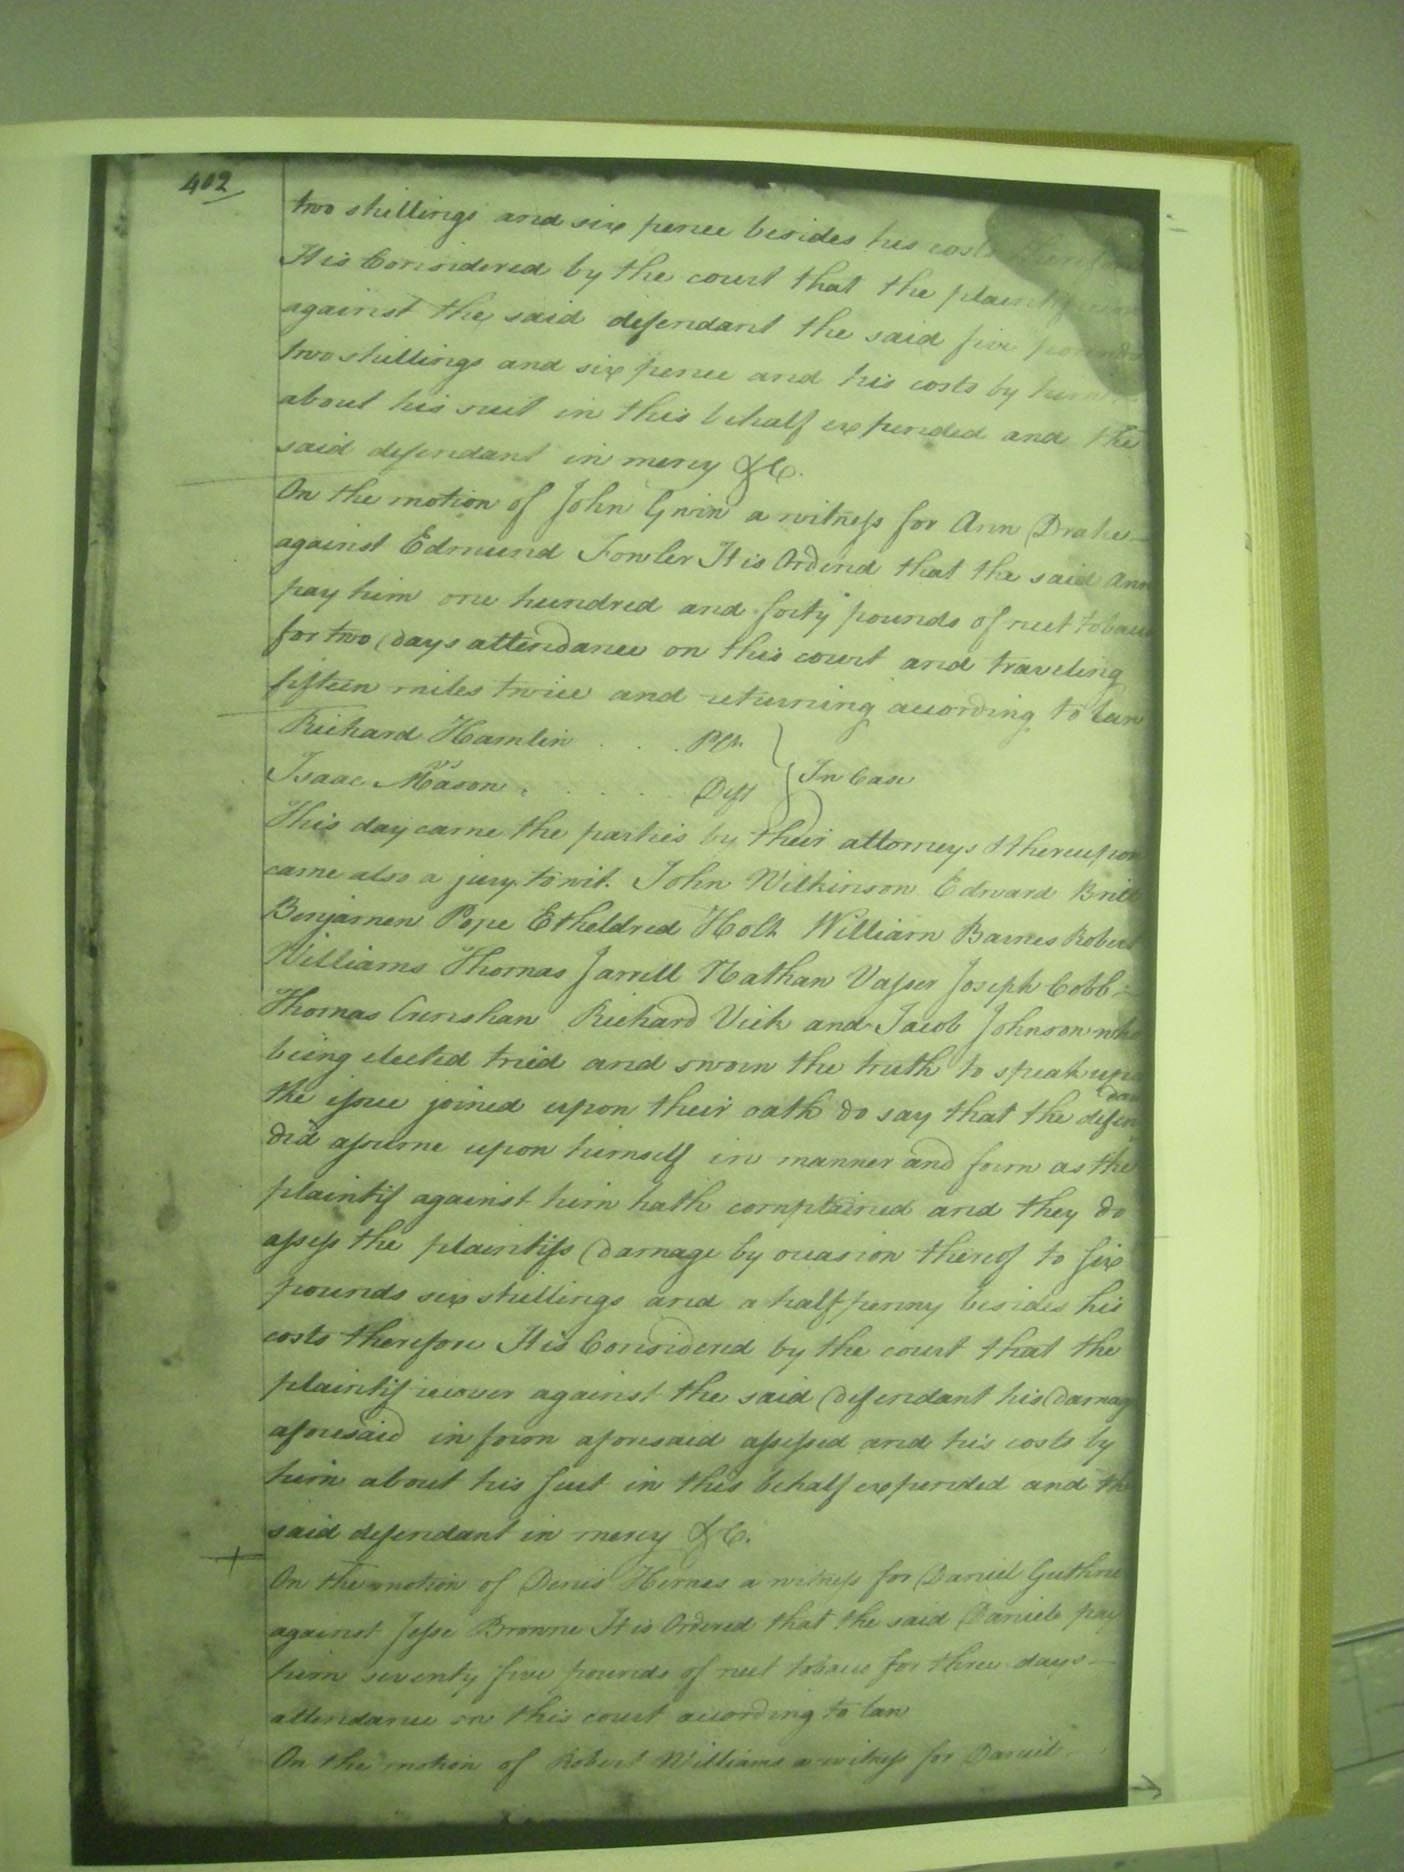 402
two shillings and six pence besides his costs
It is Considered by the court that the plaintif
against the said defendant the said five pounds
two shillings and six pence and his costs by him
about his suit in this behalf expended and the
said defendant in mercy &C.
On the motion of John Gwin a witness for Ann Drake
against Edmund Fowler It is Orderd that the said Ann
pay him one hundred and forty pounds of neet tobacco
for two days attendance on this court and traveling
fifteen miles twice and returning according to law
Richard Hamlin . . . . Plt.
Isaac Mason . . . . . . Deft } In Case
This day came the parties by their attorneys & thereupon
came also a jury towit. John Wilkinson Edward Britt
Benjamen Pope Etheldred Holt William Barnes Robert
Williams Thomas Jarrell Nathan Vasser Joseph Cobb
Thomas Crenshan Richard Vick and Jacob Johnson who
being elected tried and sworn the truth to speak upon
the issue joined upon their oath do say that the defendant
did assume upon himself in manner and form as the
plaintif against him hath complained and they do
assess the plaintifs damage by occasion thereof to six
pounds six shillings and a halfpenny besides his
costs therefore It is Considered by the court that the
plaintif recover against the said defendant his damage
aforesaid in form aforesaid assessed and his costs by
him about his suit in this behalf expended and the
said defendant in mercy &C.
On the motion of Denis a witness for Daniel Guthrie
against Jesse Browne It is Ordered that the said Daniel pay
him seventy five pounds of neet tobacco for three days
attendance on this court according to law
On the motion of Robert Williams a witness for Daniel